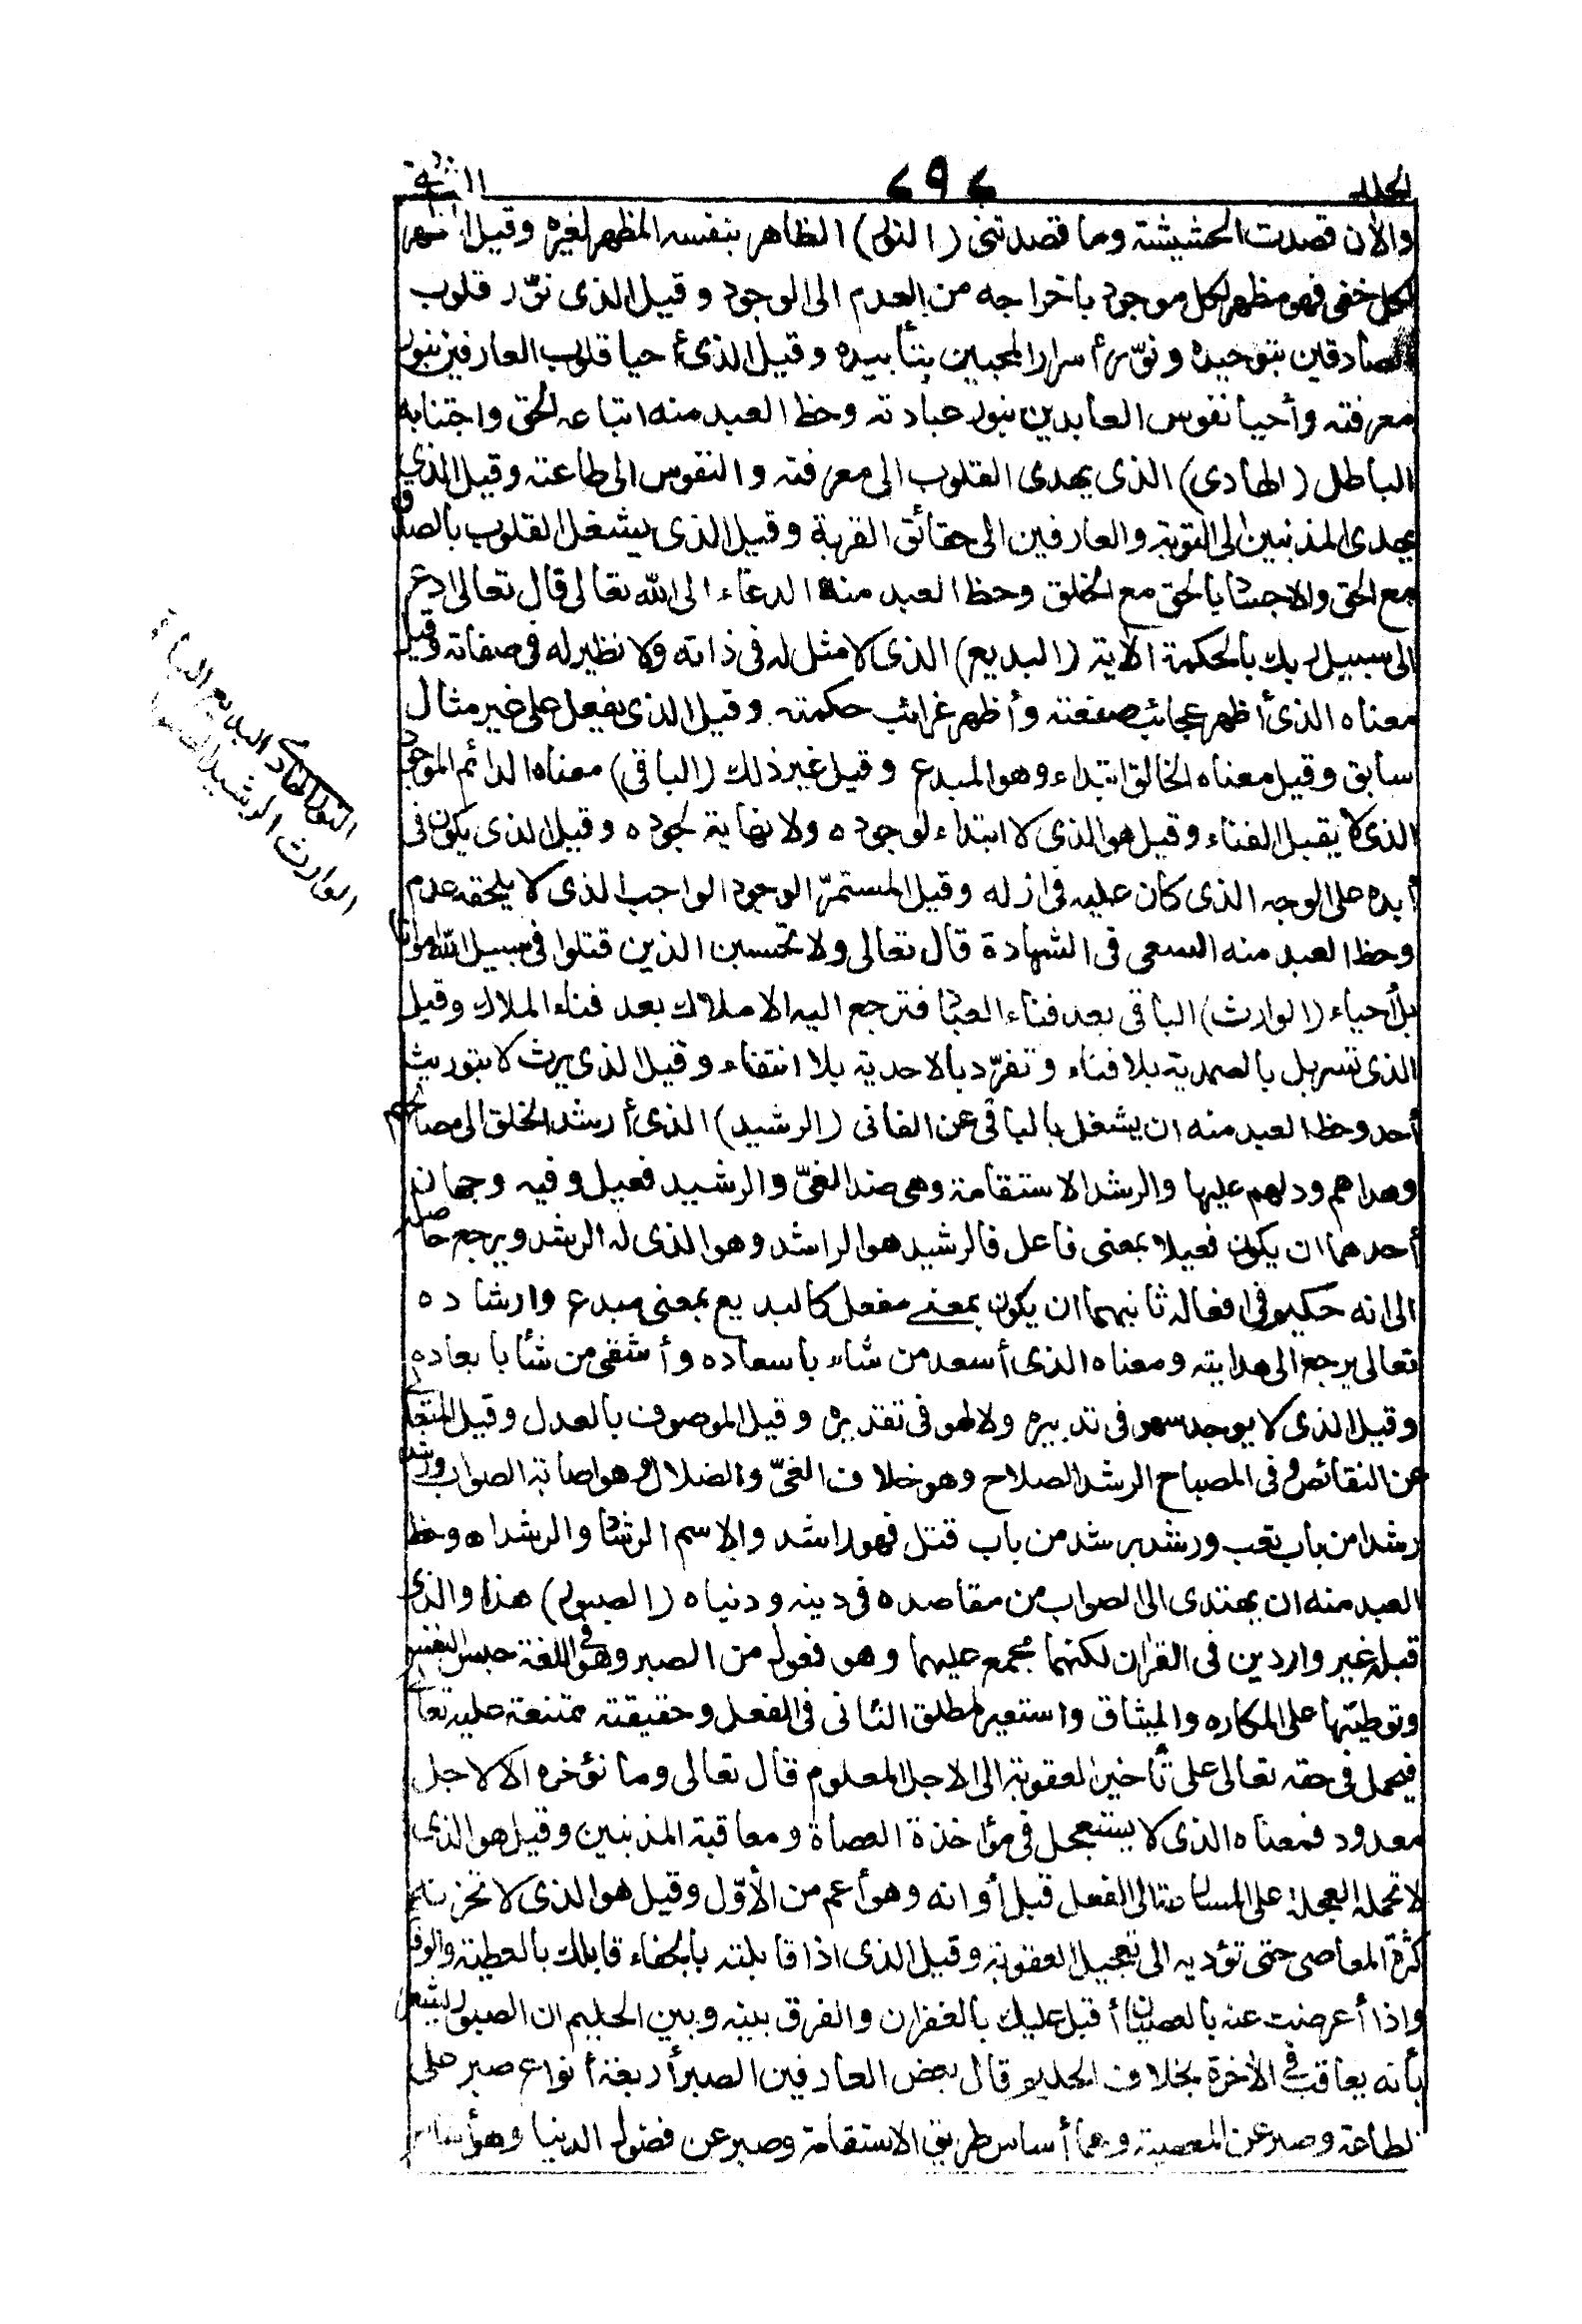 الجلد ٢٩٢ الثانى
والأن قصدت الحشيشة وما قصدتنى (النور) الظاهر بنفسه المظهر لغيره وقيل اظهر
لكل خفى فهو مظهر لكل موجود باخراجه من العدم الى الوجود وقيل الذى نوّر قلوب
الصادقين بتوحيده ونوّر أسرار المحبين بتأييده وقيل الذى أحيا قلوب العارفين بنور
معرفته وأحيا نفوس العابدين بنور عبادته وحظ العبد منه اتباعه الحق واجتنابه
الباطل (الهادى) الذى يهدى القلوب الى معرفته والنفوس الى طاعته وقيل الذى
يهدى المذنبين الى التوبة والعارفين الى حقائق القربة وقيل الذى يشغل القلوب بالصدق
مع الحق والاجساد بالحق مع الخلق وحظ العبد منه الدعاء الى الله تعالى قال تعالى ادع
الى سبيل ربك بالحكمة الآية (البديع) الذى لا مثل له فى ذاته ولا نظير له فى صفاته وقيل
معناه الذى أظهر عجائب صنعته وأظهر غرائب حكمته وقيل الذى يفعل على غير مثال
سابق وقيل معناه الخالق ابتداء وهو المبدع وقيل غير ذلك (الباقى) معناه الدائم الموجود
الذى لا يقبل الفناء وقيل هو الذى لا ابتداء لوجوده ولا نهاية لجوده وقيل الذى يكون فى
أبده على الوجه الذى كان عليه فى ازله وقيل المستمرّ الوجود الواجب الذى لا يلحقه عدم
وحظ العبد منه السعى فى الشهادة قال تعالى ولا تحسبن الذين قتلوا فى سبيل الله امواتا
بل أحياء (الوارث) الباقى بعد فناء العباد فترجع اليه الاملاك بعد فناء الملاك وقيل
الذى تسربل بالصمدية بلا فناء وتفرّد بالاحدية بلا انتفاء وقيل الذى يرث لا بتوريث
أحد وحظ العبد منه ان يشغل بالباقى عن الفانى (الرشيد) الذى أرشد الخلق الى مصالحهم
وهداهم ودلهم عليها والرشد الاستقامة وهى ضد الغىّ والرشيد فعيل وفيه وجهان
أحدهما ان يكون فعيلا بمعنى فاعل فالرشيد هو الراشد وهو الذى له الرشد ويرجع حاصله
الى انه حكيم فى افعاله ثانيهما ان يكون بمعنى مفعل كالبديع بمعنى مبدع وارشاده
تعالى يرجع الى هدايته ومعناه الذى أسعد من شاء باسعاده وأشقى من شأ بابعاده
وقيل الذى لا يوجد سهو فى تدبيره ولا لهو فى تقديره وقيل الموصوف بالعدل وقيل المتعالى
عن النقائص وفى المصباح الرشد الصلاح وهو خلاف الغىّ والضلال وهو اصابة الصواب ورشد
رشدا من باب تعب ورشد يرشد من باب قتل فهو راشد والاسم الرشاد والرشد اه وحظ
العبد منه ان يهتدى الى الصواب من مقاصده فى دينه ودنياه (الصبور) هذا والذى
قبله غير واردين فى القرآن لكنهما مجمع عليهما وهو فعول من الصبر وهو فى اللغة حبس النفس
وتوطينها على المكاره والميثاق واستعير لمطلق التانى فى الفعل وحقيقته ممتنعة عليه تعالى
فيحمل فى حقه تعالى على تأخير العقوبة الى الاجل المعلوم قال تعالى وما نؤخره الا لاجل
معدود فمعناه الذى لا يستعجل فى مؤاخذة العصاة ومعاقبة المذنبين وقيل هو الذى
لا تحمله العجلة على المسارعة الى الفعل قبل أوانه وهو أعم من الأوّل وقيل هو الذى لا تحزنه
كثرة المعاصى حتى تؤديه الى تعجيل العقوبة وقيل الذى اذا قابلته بالجفاء قابلك بالعطية والوفا
واذا أعرضت عنه بالعصيان أقبل عليك بالغفران والفرق بينه وبين الحليم ان الصبور يشعر
بأنه يعاقب فى الأخرة بخلاف الحليم قال بعض العارفين الصبر أربعة أنواع صبر على
الطاعة وصبر عن المعصية وهما أساس طريق الاستقامة وصبر عن فضول الدنيا وهو أساس
النور الهادى البديع الباقى
الوارث الرشيد الصبور